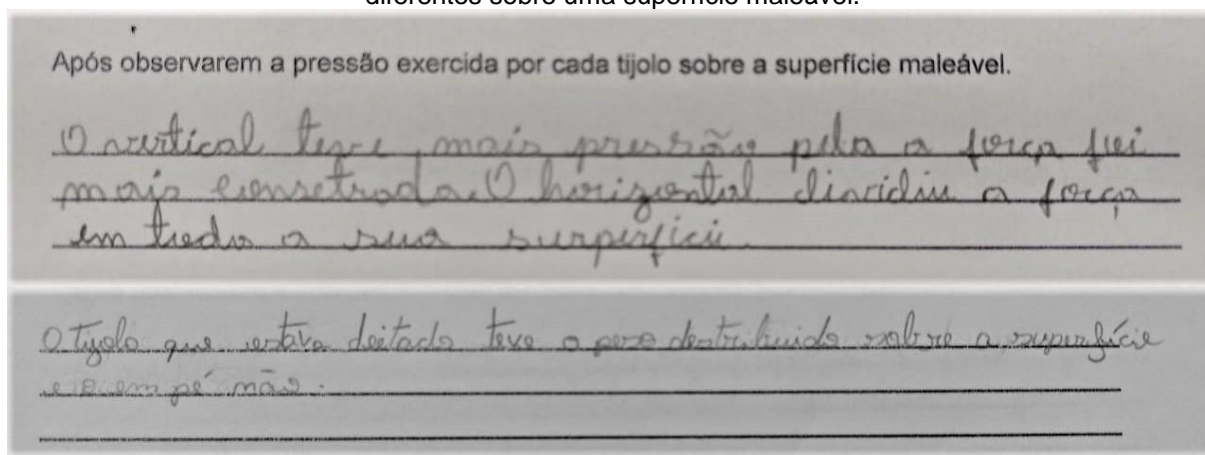 diferentes sobre uma superfície maleável.
Após observarem a pressão exercida por cada tijolo sobre a superfície maleável.
O vertical teve mais pressão pela a força foi
mais consetrada. O horizontal dividiu a força
em todo a sua surperficie
O tijolo que estava deitado teve o peso destribuido sobre a superfície
e o em pé não.